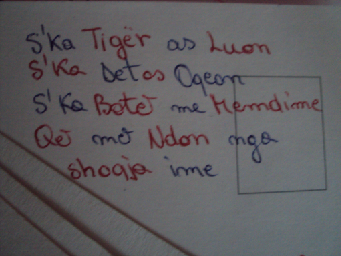 S'Ka Tigër as Luon
S'Ka Detas Oqean
S'Ka Botë me Hemdime
Që më Ndon nga
shoqja ime